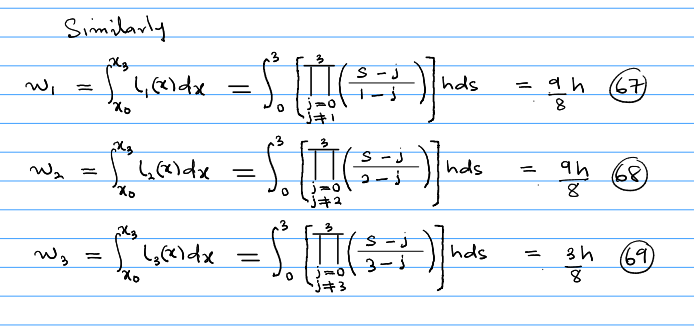 Similarly
w₁ = ∫_{x₀}^{x₃} l₁(x)dx = ∫₀³ [∏_{j=0, j≠1}^{3} ((s-j)/(1-j))] hds = 9/8 h (67)
w₂ = ∫_{x₀}^{x₃} l₂(x)dx = ∫₀³ [∏_{j=0, j≠2}^{3} ((s-j)/(2-j))] hds = 9h/8 (68)
w₃ = ∫_{x₀}^{x₃} l₃(x)dx = ∫₀³ [∏_{j=0, j≠3}^{3} ((s-j)/(3-j))] hds = 3h/8 (69)